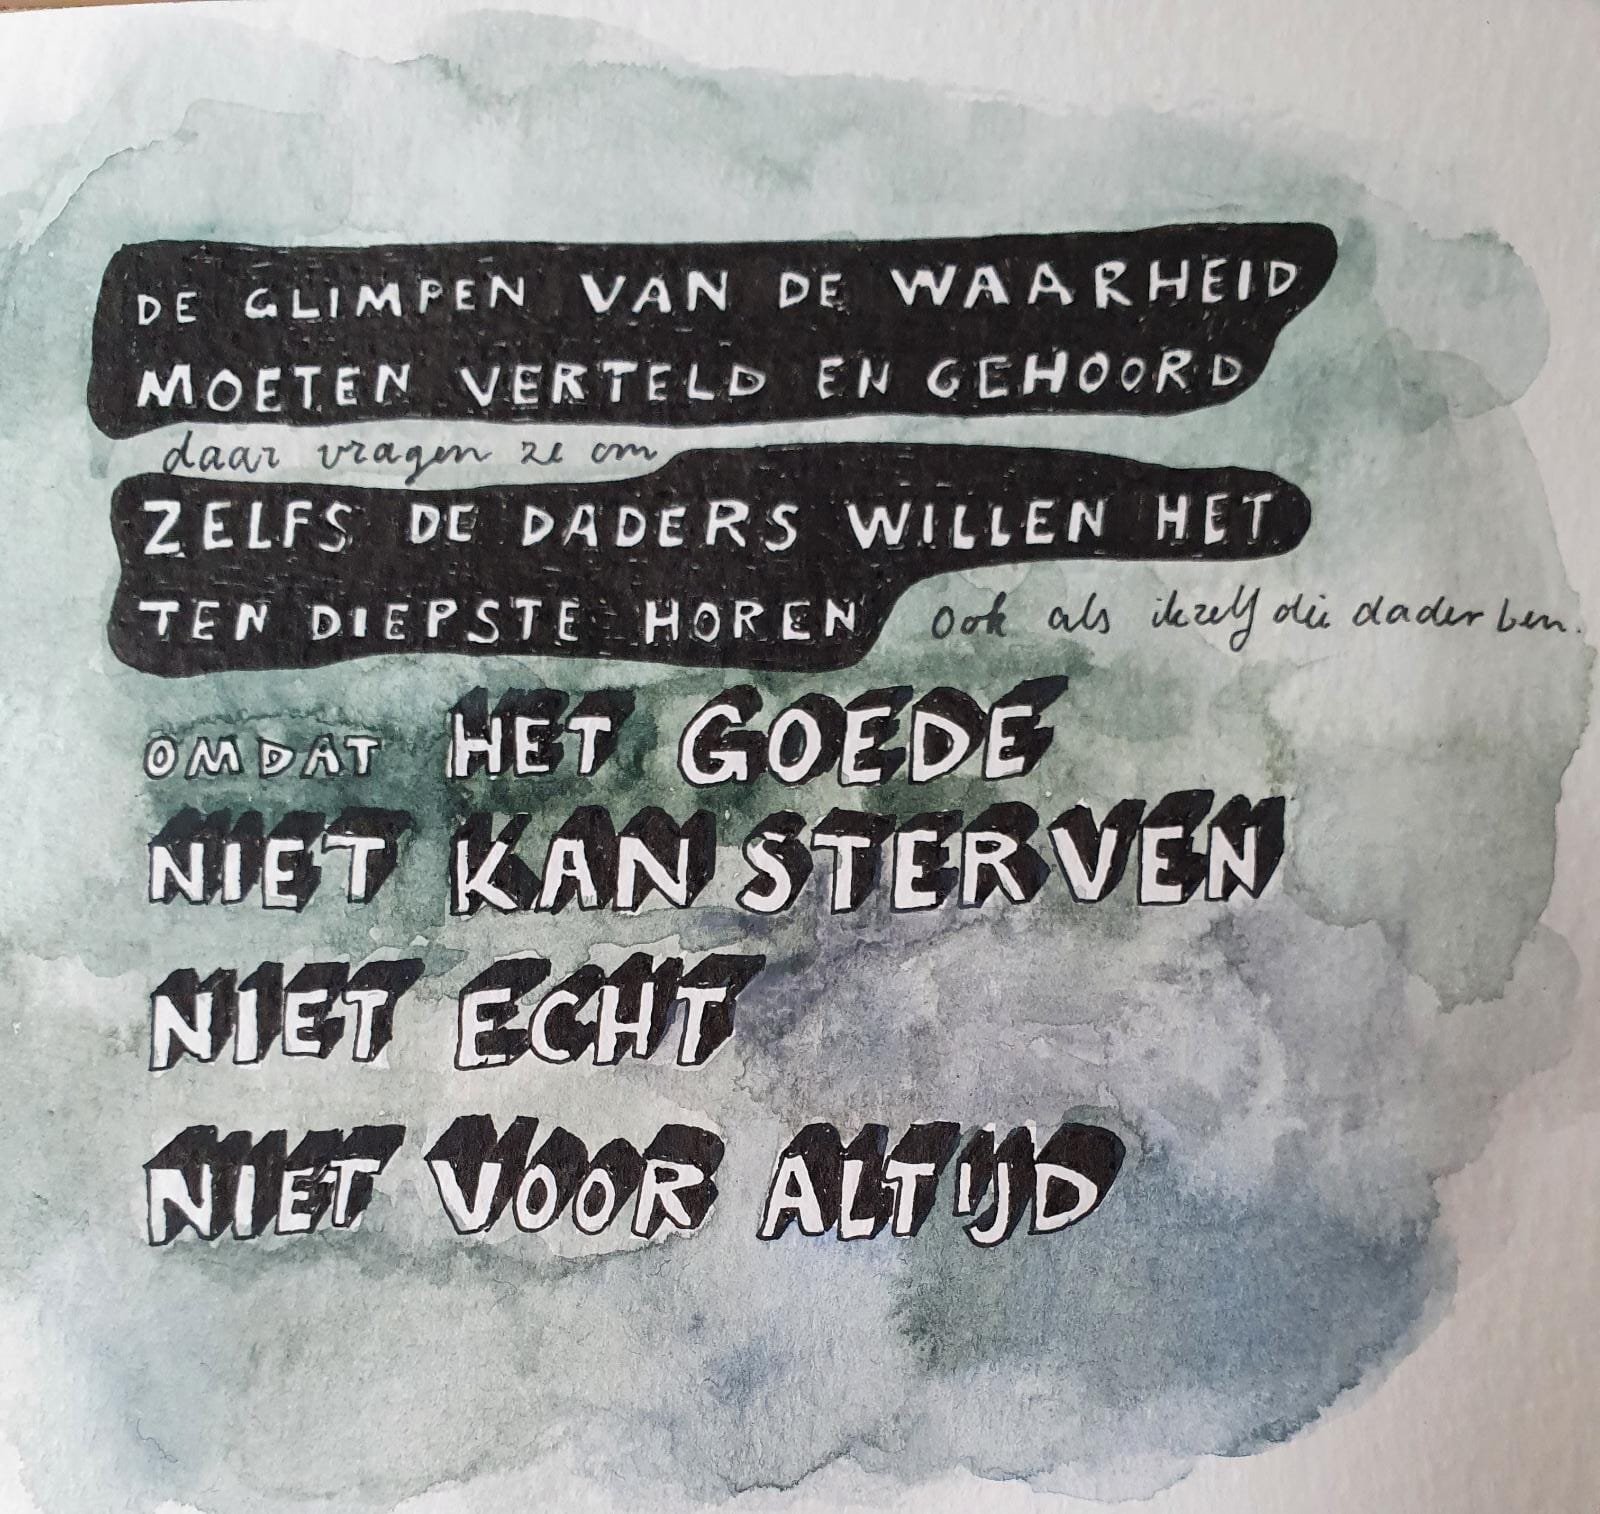 DE GLIMPEN VAN DE WAARHEID
MOETEN VERTELD EN GEHOORD
daar vragen ze om
ZELFS DE DADERS WILLEN HET
TEN DIEPSTE HOREN ook als ikzelf die dader ben.
OMDAT HET GOEDE
NIET KAN STERVEN
NIET ECHT
NIET VOOR ALTIJD